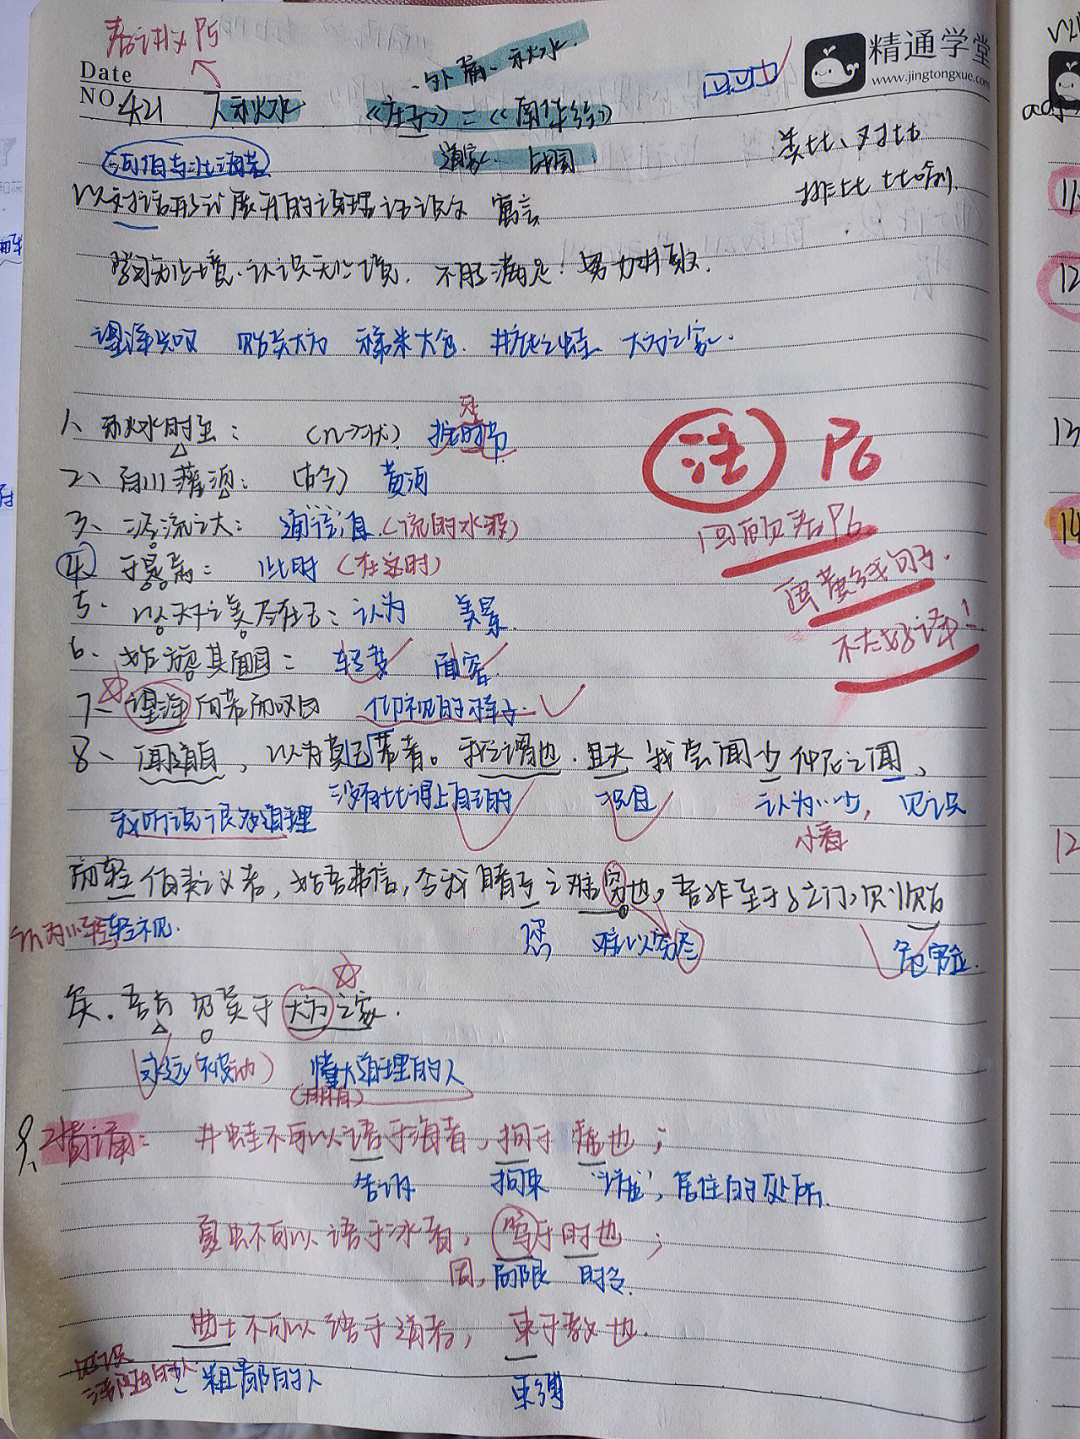 看讲义P5
外篇、秋水.
精通学堂
www.jingtongxue.com
Date
NO. 4.21 《秋水》 《庄子》=《南华经》
道家 战国
类比、对比
排比 比喻.
河伯与北海若
以对话形式展开的说理议论文 寓言
学习无止境.认识无止境. 不自满足!努力进取.
望洋兴叹 贻笑大方 稊米太仓. 井底之蛙. 大方之家.
1、秋水时至: (n→状) 按时节
2、百川灌河: (古今) 黄河
3、泾流之大: 通"径"直(流的水波)
4、于是焉: 此时(在这时)
5. 以天下之美为尽在己: 认为 美景
6、始旋其面目: 转变 面容
7、望洋向若而叹曰 仰视的样子.
8、闻道百, 以为莫己若者。我之谓也. 且夫 我尝闻少仲尼之闻,
我听说很多道理 没有比得上自己的 况且 认为…少, 见识
小看
而轻伯夷之义者, 始吾弗信, 今我睹子之难穷也, 吾非至于子之门,则殆
认为…轻 轻视. 您 难以穷尽 危险.
矣. 吾长见笑于大方之家.
永远(被动) 懂大道理的人
注 P6
回顾看P6
画黄线句子.
不太好译!
9、背诵: 井蛙不可以语于海者, 拘于虚也;
告诉 拘束 "墟", 居住的处所.
夏虫不可以语于冰者, 笃于时也;
固, 局限 时令
曲士不可以语于道者, 束于教也.
粗鄙的人 束缚